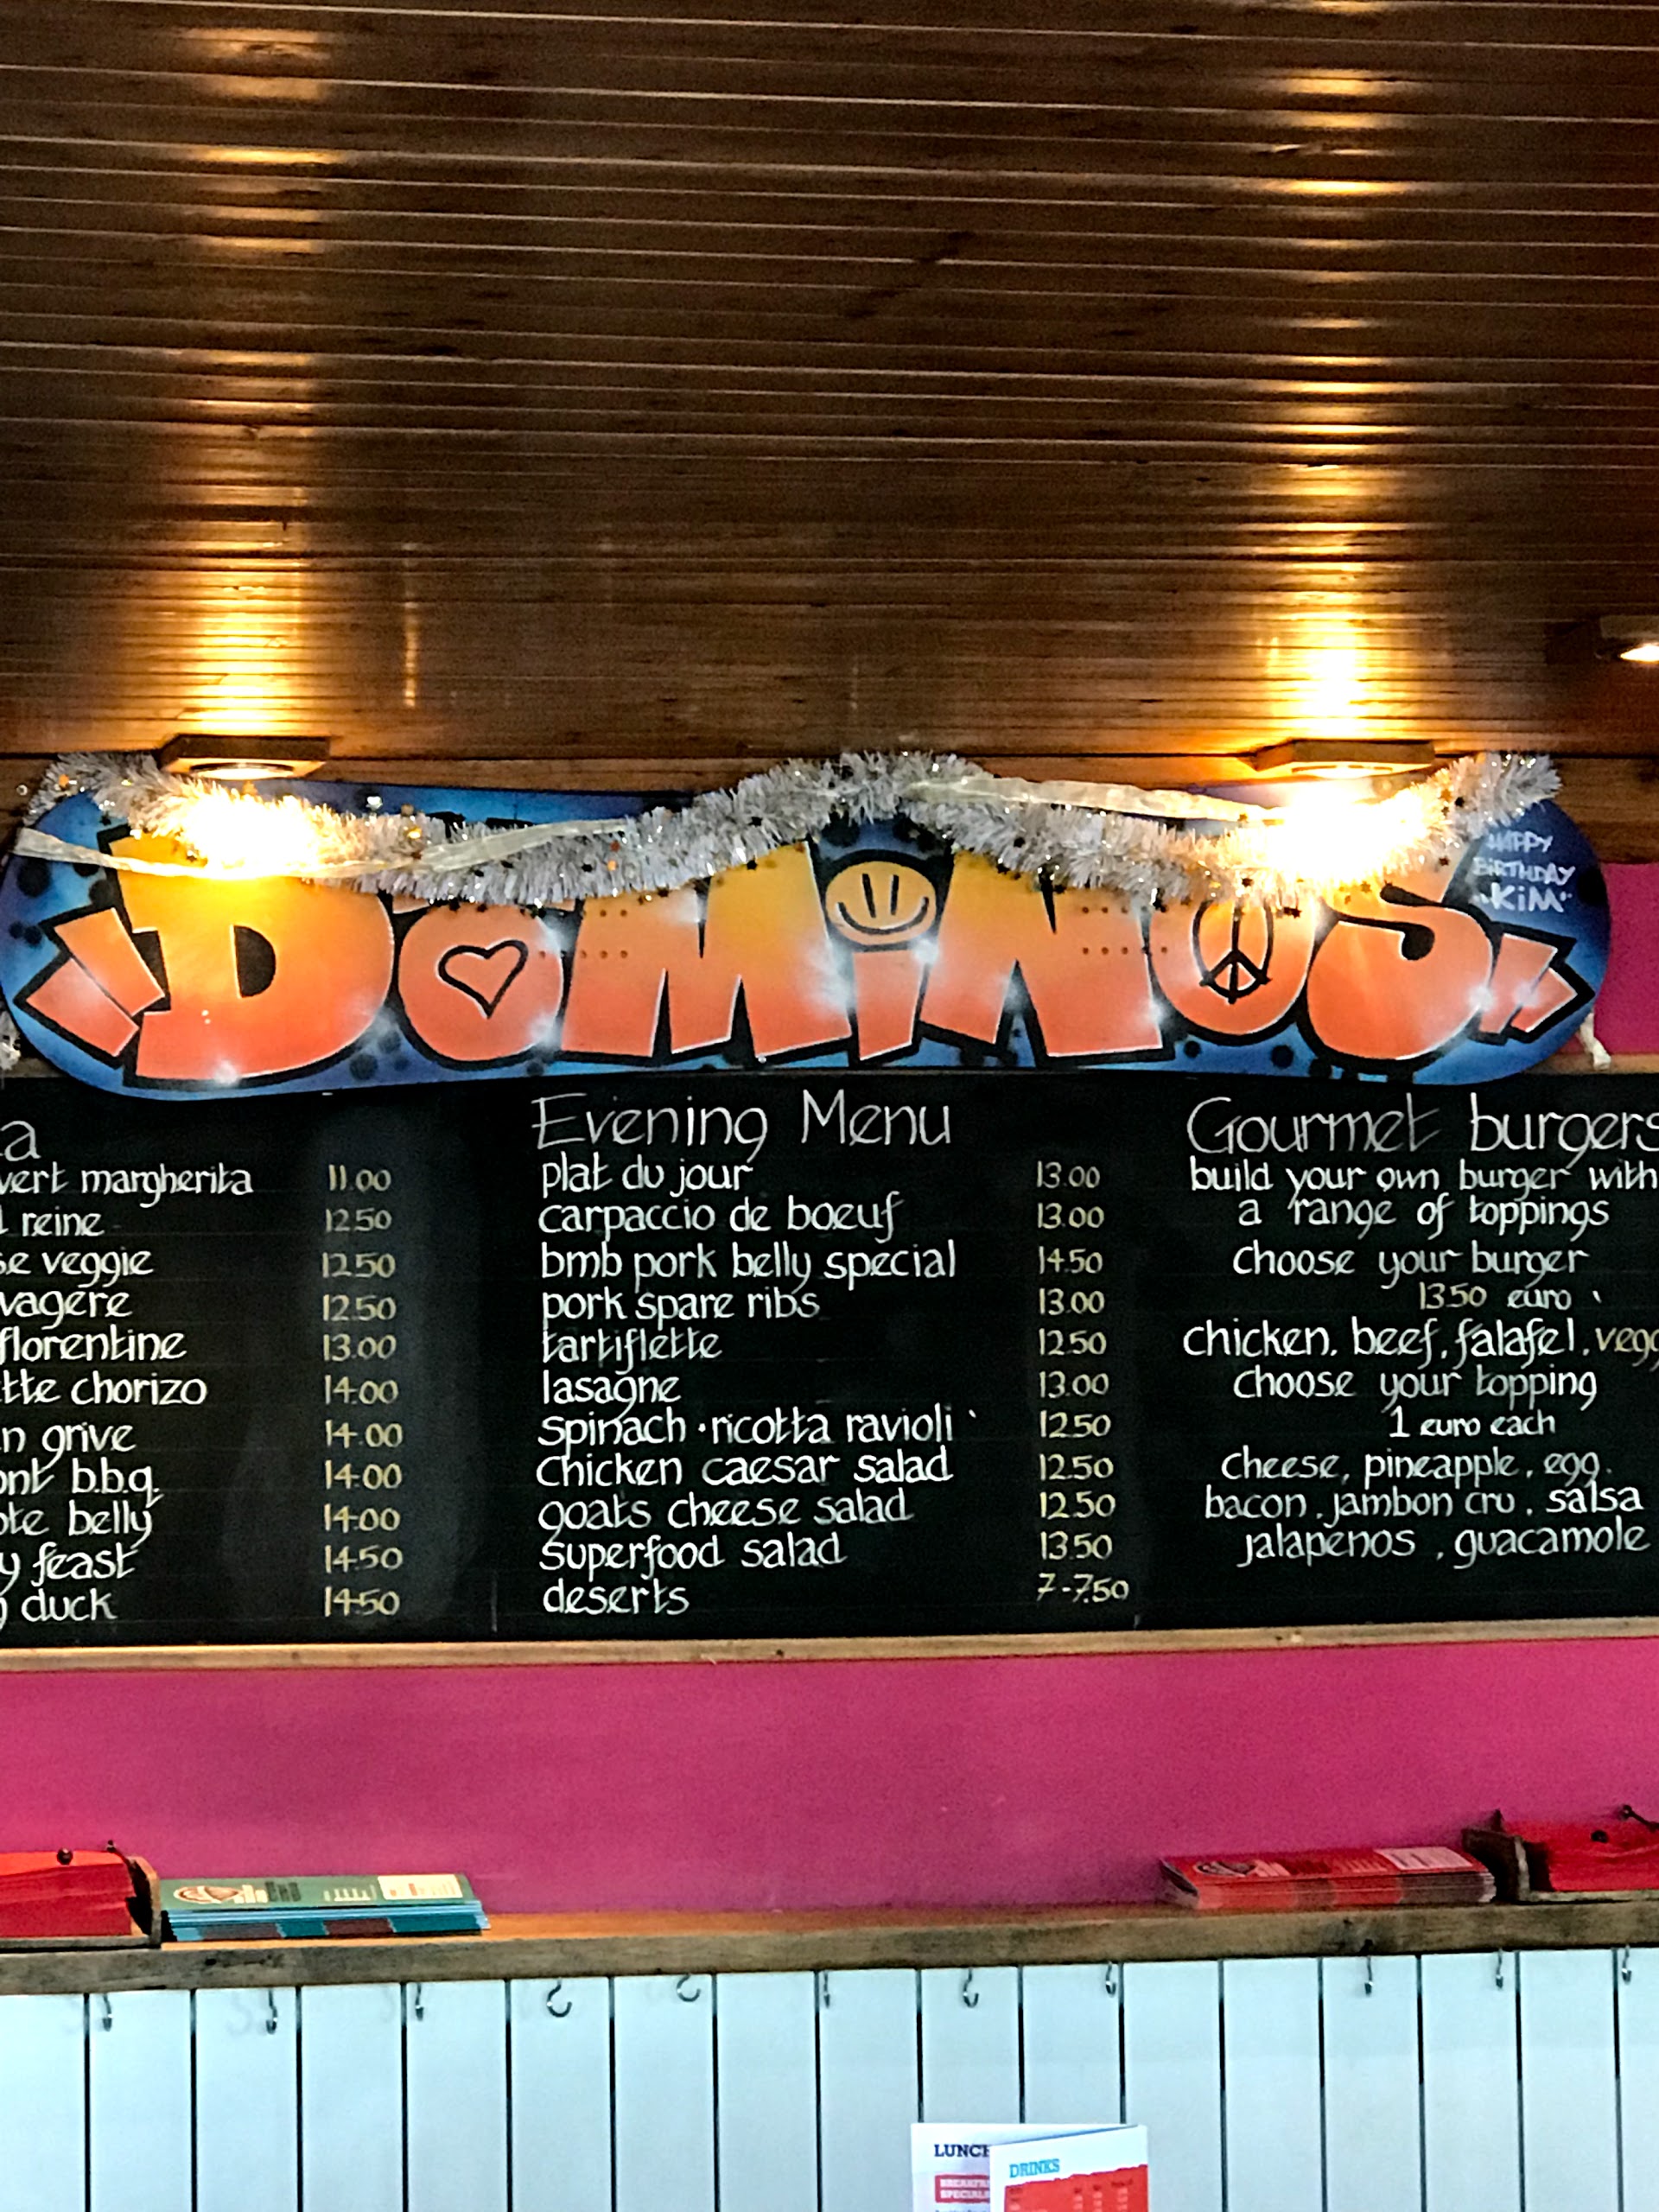 DOMiNOS
HAPPY
BiRTHDAY
"KiM"
margherita 11.00
reine 12.50
veggie 12.50
12.50
florentine 13.00
chorizo 14.00
grive 14.00
b.b.q. 14.00
belly 14.00
feast 14.50
duck 14.50
Evening Menu
plat du jour 13.00
carpaccio de boeuf 13.00
bmb pork belly special 14.50
pork spare ribs 13.00
tartiflette 12.50
lasagne 13.00
spinach · ricotta ravioli 12.50
chicken caesar salad 12.50
goats cheese salad 12.50
superfood salad 13.50
deserts 7-7.50
Gourmet burgers
build your own burger with
a range of toppings
choose your burger
13.50 euro
chicken, beef, falafel,
choose your topping
1 euro each
cheese, pineapple, egg.
bacon, jambon cru, salsa
jalapenos, guacamole
LUNCH
DRINKS